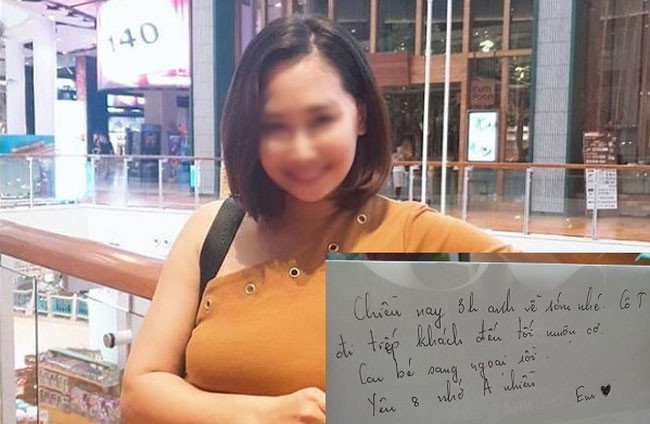 140
Chiều nay 3h anh về sớm nhé. Cô T
đi tiếp khách đến tối muộn cơ.
Con bé sang ngoại rồi.
Yêu & nhớ A nhiều
Em ♥